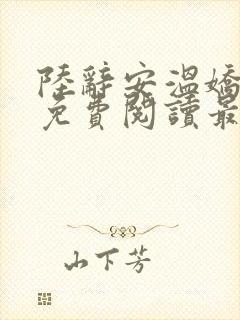 陸辭安溫嬌
免費閱讀最
山下芳